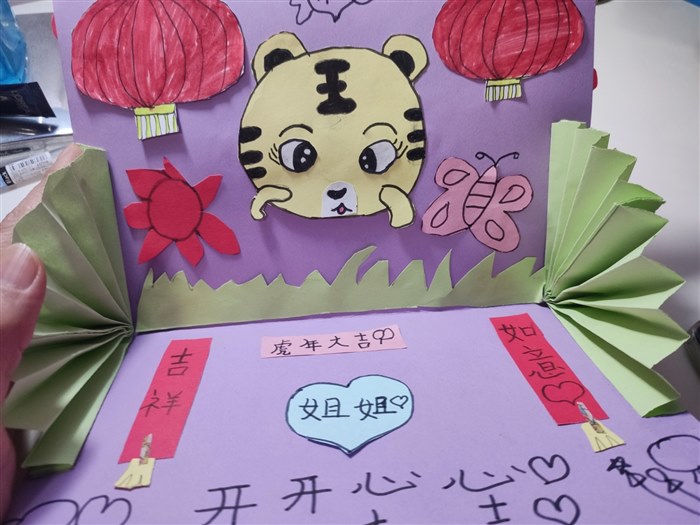 王
虎年大吉
吉祥
如意
姐姐
开开心心